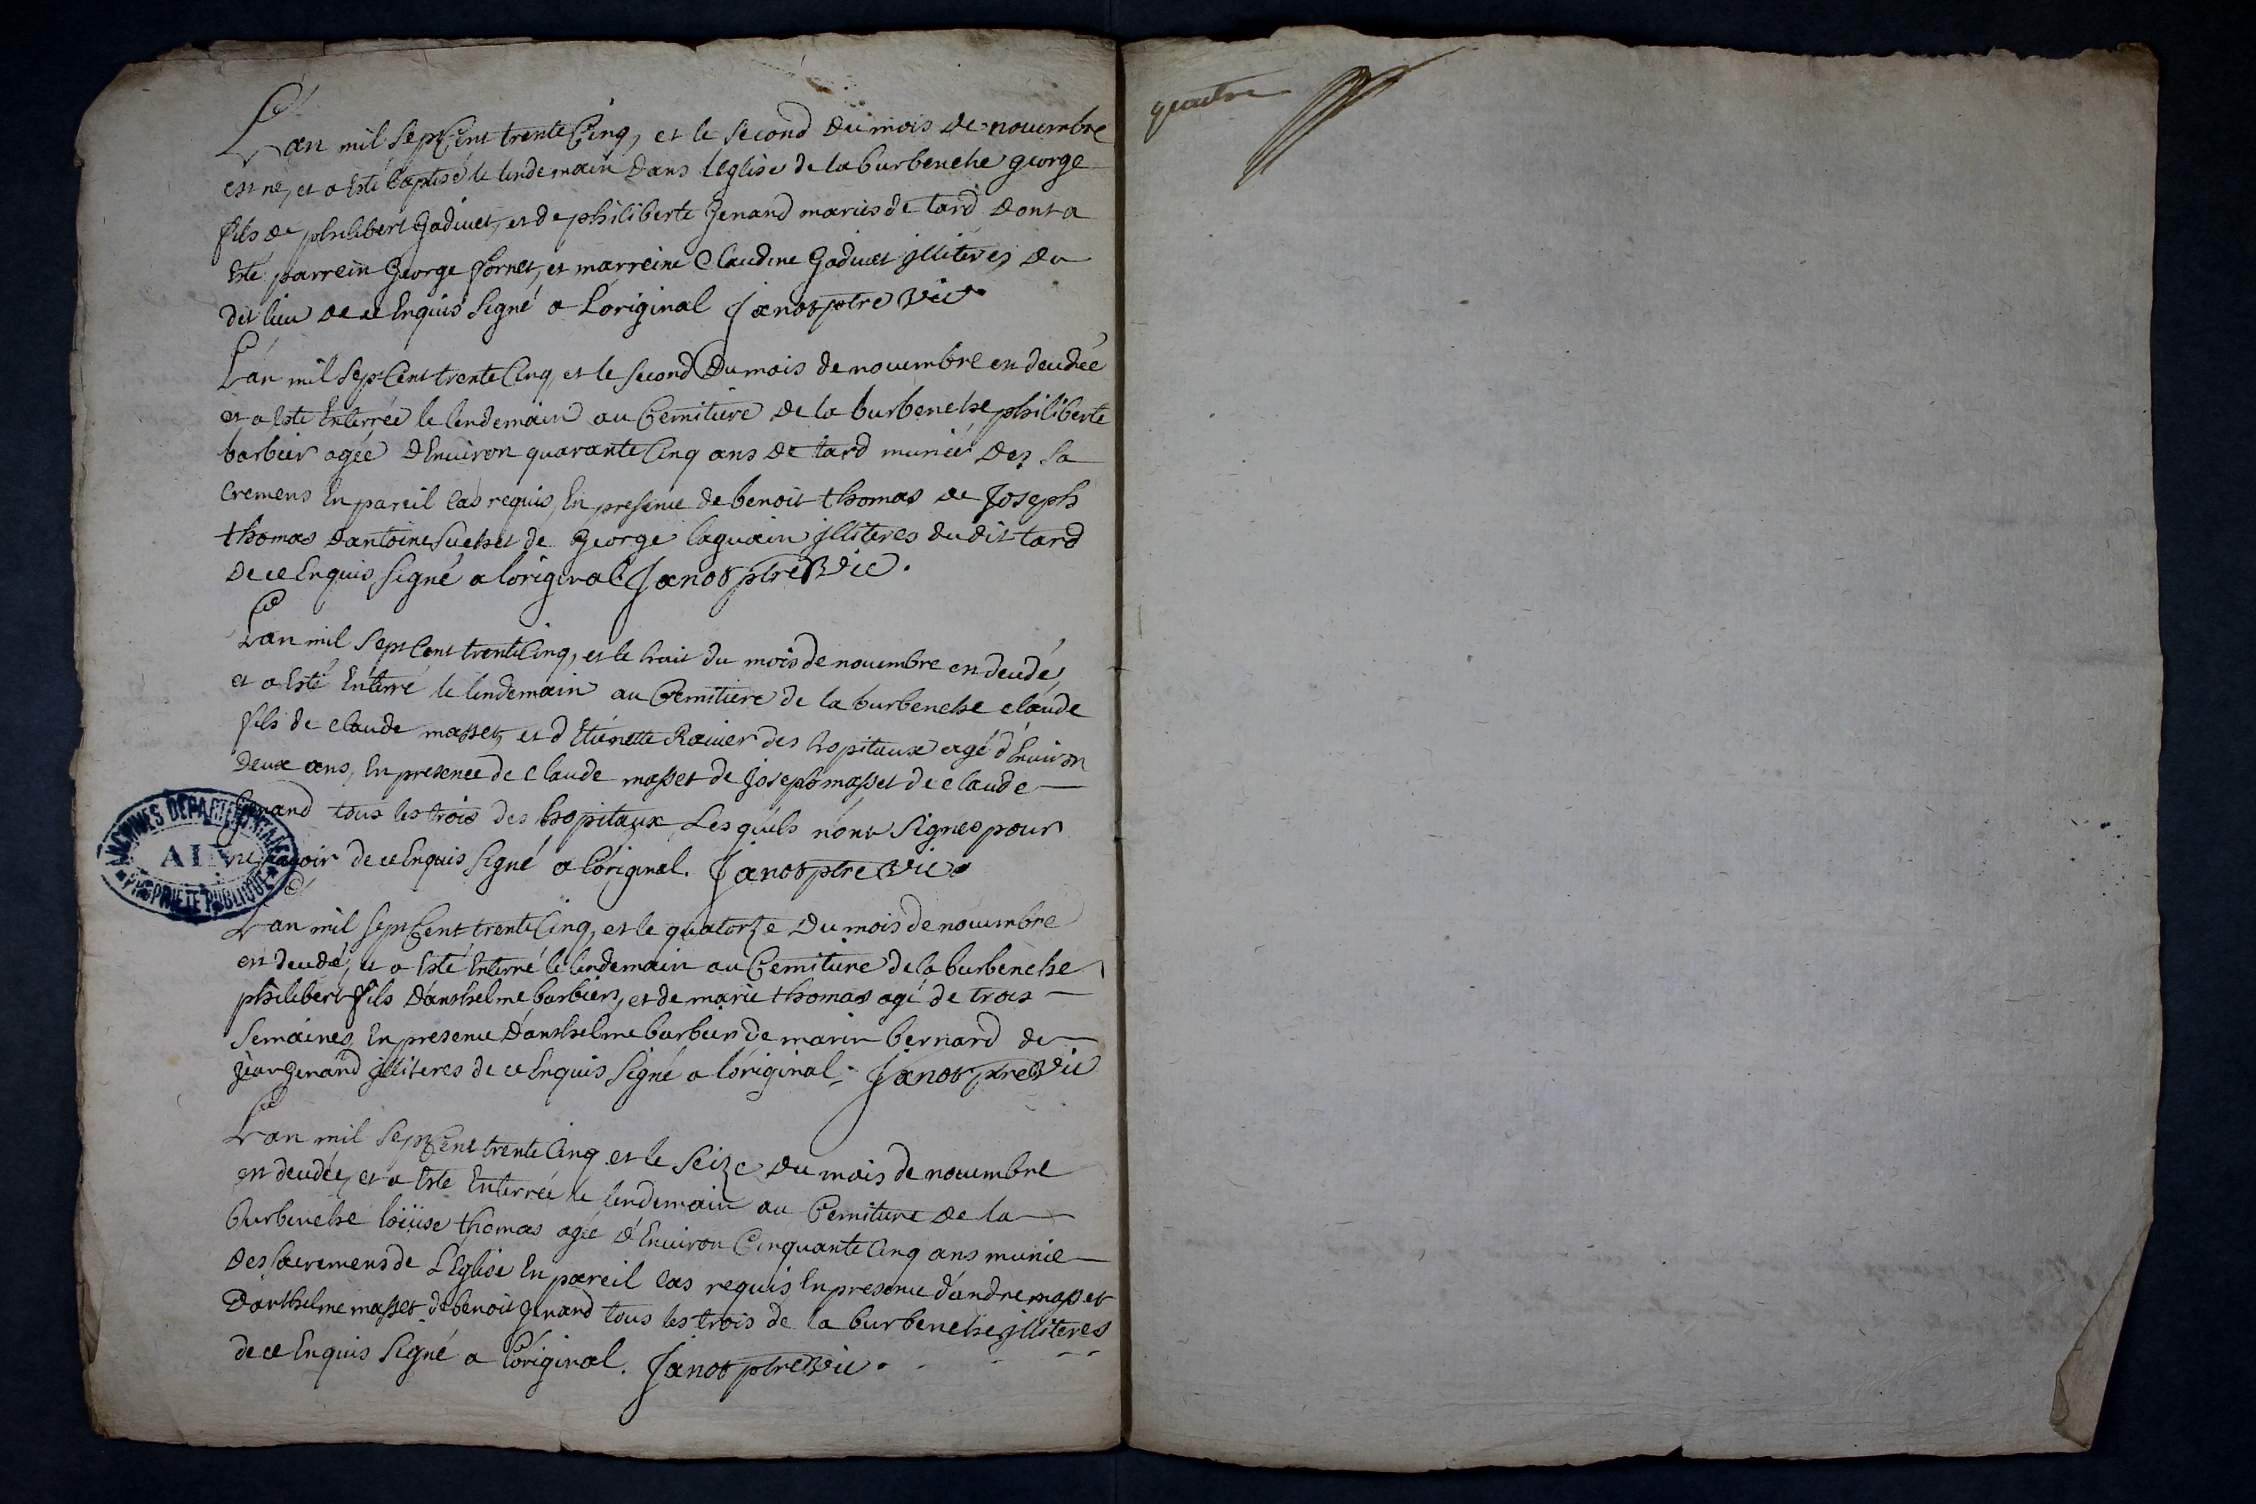 L'an mil sept Cent trente Cinq, et le second du mois de nouembre
est né, et a esté baptisé le lendemain dans l'eglise de la burbenche george
fils de philibert Gadiuet, et de philiberte Jenand mariés de tard dont a
esté parrein George fornet, et marreine Claudine Gadiuet illiteres du
dit lieu de ce Enquis signé a L'original Janot ptre vic
L'an mil sept Cent trente Cinq, et le second du mois de nouembre est decedée
et a esté Enterrée le lendemain au Cemitiere de la burbenche philiberte
barbier agée d'Enuiron quarante Cinq ans de tard munié des sa
cremens En pareil Cas requis, En presence de benoit thomas de Joseph
thomas d'antoine suchet de George laguain illiteres dudit tard
de ce Enquis signé a l'original Janot ptre vic.
L'an mil sept Cent trente Cinq, et le huit du mois de nouembre est decedé,
et a esté Enterré le lendemain au Cemitiere de la burbenche claude
fils de claude masset, et d'Etienette Rauier des hopitaux agé d'Enuiron
deux ans, En presence de claude masset de joseph masset de claude
Genand tous les trois des hopitaux, Lesquels n'ont signés pour
ne sçauoir de ce Enquis signé a l'original. Janot ptre vic
L'an mil sept Cent trente Cinq, et le quatorze du mois de nouembre
est decedé, et a esté Enterré le lendemain au Cemitiere de la burbenche
philibert fils d'anthelme barbier, et de marie thomas agé de trois
semaines, En presence d'anthelme barbier de marin bernard de
jean Genand illiteres de ce Enquis signé a l'original. Janot ptre vic
L'an mil sept Cent trente Cinq et le seize du mois de nouembre
est decedée, et a esté Enterrée le lendemain au Cemitiere de la
burbenche loüise thomas agée d'Enuiron Cinquante Cinq ans munie
des sacremens de L'Eglise En pareil Cas requis En presence d'andre masset
d'anthelme masset de benoit Genand tous les trois de la burbenche illiteres
de ce Enquis signé a l'original. Janot ptre vic.
quatre
ARCHIVES DEPARTEMENTALES
AIN
PROPRIETE PUBLIQUE